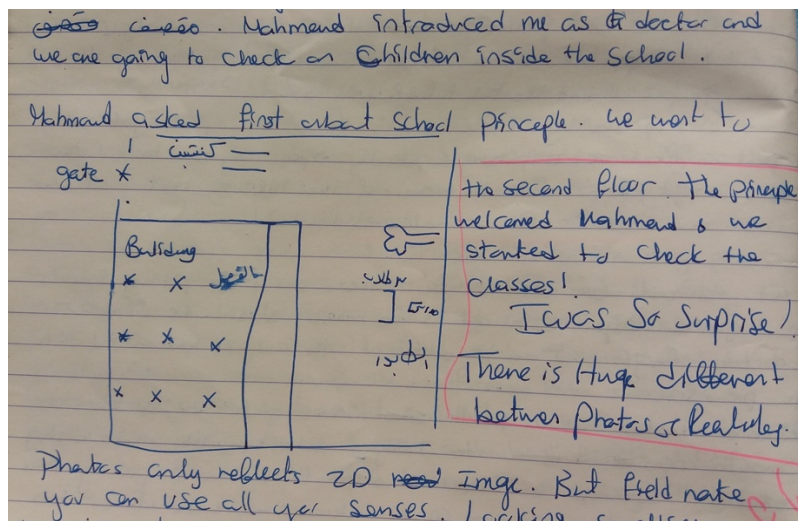 Mahmoud introduced me as a doctor and
we are going to check on Children inside the School.
Mahmoud asked first about school Princeple. we went to
كنتين
gate
Building
the second floor. the Princeple
welcomed Mahmoud & we
started to check the
classes!
I was so Surprise!
There is Huge different
between Photos & Reality.
Photos only reflects 2D Image. But field note
you can use all your senses.